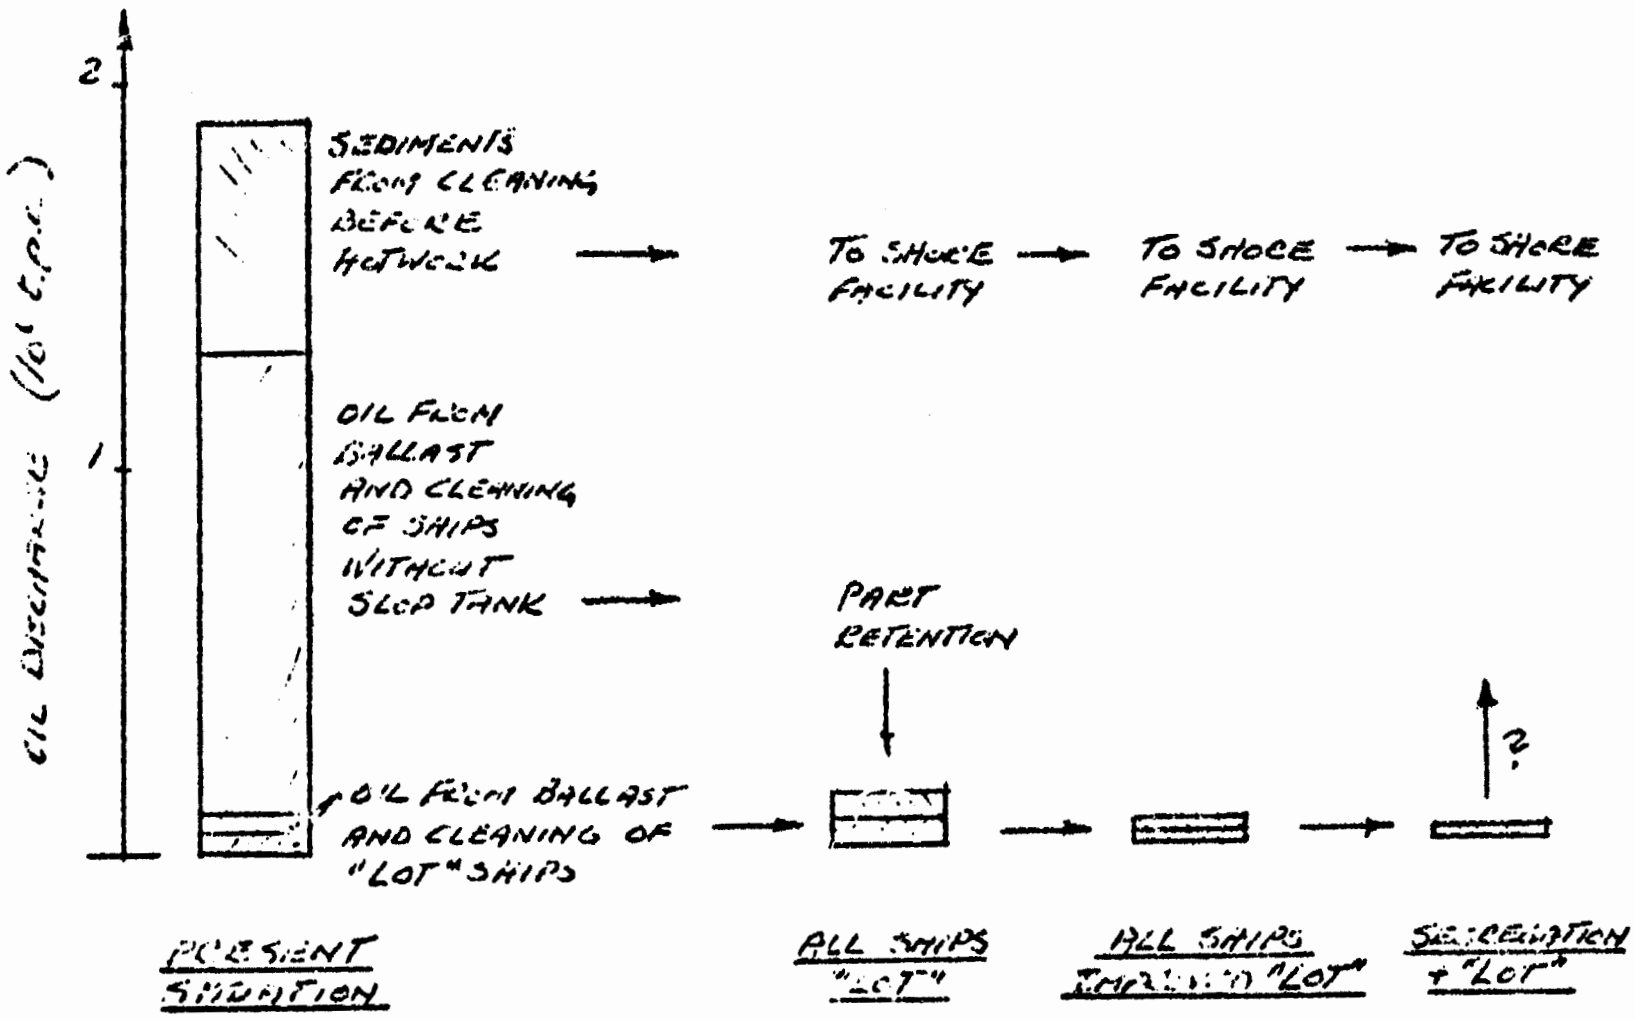 2
1
OIL DISCHARGE
SEDIMENTS
FROM CLEANING
BEFORE
HOTWORK
TO SHORE
FACILITY
TO SHORE
FACILITY
TO SHORE
FACILITY
OIL FROM
BALLAST
AND CLEANING
OF SHIPS
WITHOUT
SLOP TANK
PART
RETENTION
?
OIL FROM BALLAST
AND CLEANING OF
"LOT" SHIPS
PRESENT
SITUATION
ALL SHIPS
"LOT"
ALL SHIPS
IMPROVED "LOT"
SEGREGATION
+ "LOT"